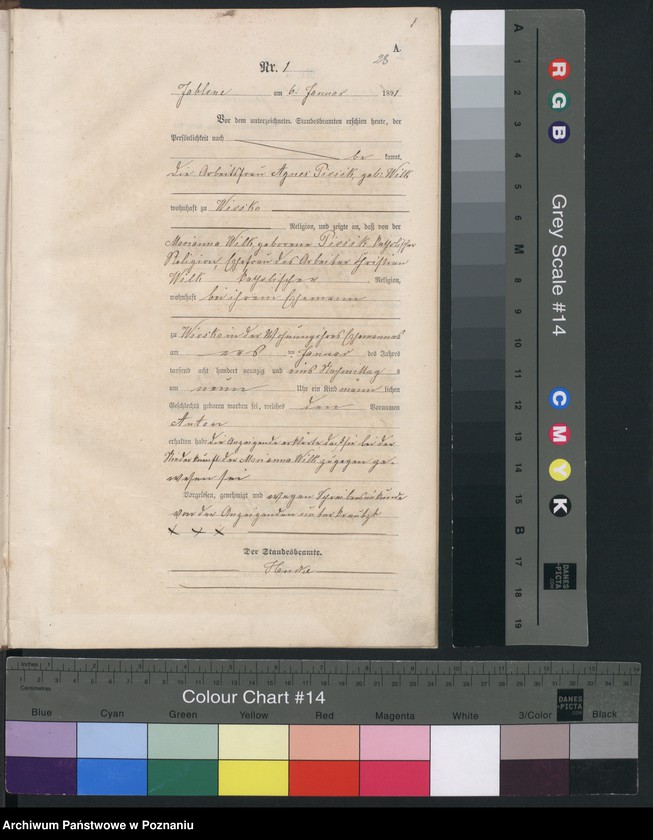 1
A.
28
Nr. 1
Jablone am 6. Januar 1891
Vor dem unterzeichneten Standesbeamten erschien heute, der
Persönlichkeit nach
be kannt,
die Arbeitsfrau Agnes Piosik, geb. Wilk
wohnhaft zu Wiosko
Religion, und zeigte an, daß von der
Marianna Wilk, geborene Piosik katholischer
Religion, Ehefrau des Arbeiter Christian
Wilk katholischer Religion,
wohnhaft bei ihrem Ehemann
zu Wiosko in der Wohnung ihres Ehemannes
am Januar des Jahres
tausend acht hundert neunzig und eins Nachmittag s
um neun Uhr ein Kind männ lichen
Geschlechts geboren worden sei, welches den Vornamen
Anton
erhalten habe. die Anzeigende erklärte daß sie bei der
Niederkunft der Marianna Wilk zugegen ge-
wesen sei
Vorgelesen, genehmigt und wegen Schreibensunkunde
von der Anzeigenden unterkreuzt
x x x
Der Standesbeamte.
Grey Scale #14
R G B
C M Y K
A 1 2 3 4 5 6 M 8 9 10 11 12 13 14 15 B 17 18 19
DANES
PICTA
Inches
Centimetres
Colour Chart #14
DANES
PICTA
Blue Cyan Green Yellow Red Magenta White 3/Color Black
Archiwum Państwowe w Poznaniu